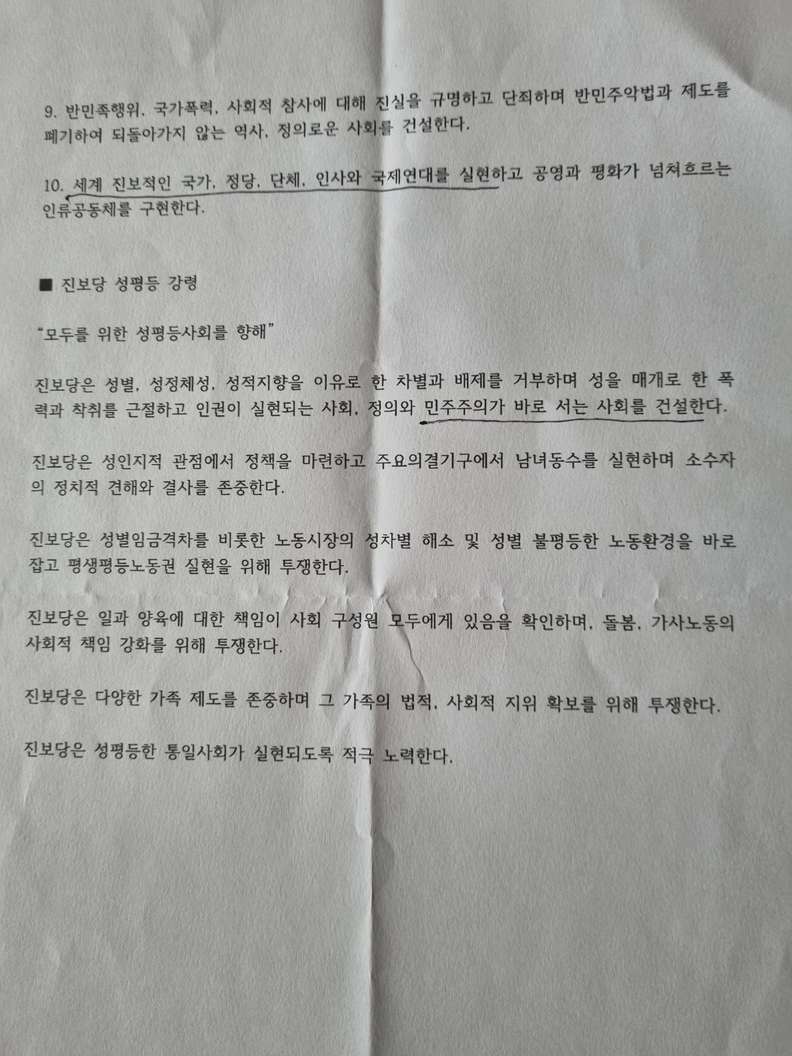 9. 반민족행위, 국가폭력, 사회적 참사에 대해 진실을 규명하고 단죄하며 반민주악법과 제도를
폐기하여 되돌아가지 않는 역사, 정의로운 사회를 건설한다.
10. 세계 진보적인 국가, 정당, 단체, 인사와 국제연대를 실현하고 공영과 평화가 넘쳐흐르는
인류공동체를 구현한다.
■ 진보당 성평등 강령
“모두를 위한 성평등사회를 향해”
진보당은 성별, 성정체성, 성적지향을 이유로 한 차별과 배제를 거부하며 성을 매개로 한 폭
력과 착취를 근절하고 인권이 실현되는 사회, 정의와 민주주의가 바로 서는 사회를 건설한다.
진보당은 성인지적 관점에서 정책을 마련하고 주요의결기구에서 남녀동수를 실현하며 소수자
의 정치적 견해와 결사를 존중한다.
진보당은 성별임금격차를 비롯한 노동시장의 성차별 해소 및 성별 불평등한 노동환경을 바로
잡고 평생평등노동권 실현을 위해 투쟁한다.
진보당은 일과 양육에 대한 책임이 사회 구성원 모두에게 있음을 확인하며, 돌봄, 가사노동의
사회적 책임 강화를 위해 투쟁한다.
진보당은 다양한 가족 제도를 존중하며 그 가족의 법적, 사회적 지위 확보를 위해 투쟁한다.
진보당은 성평등한 통일사회가 실현되도록 적극 노력한다.